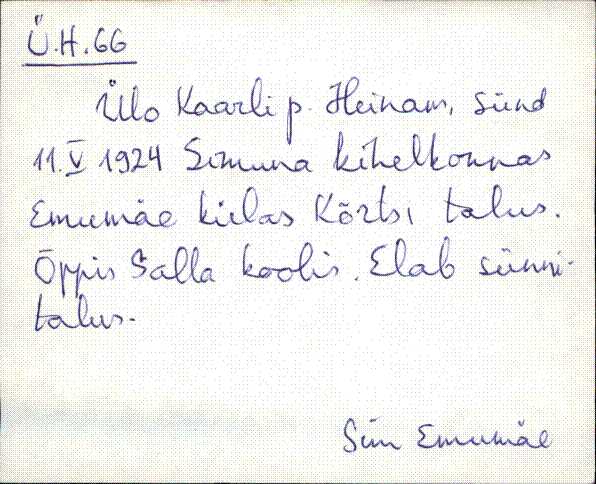 Ü.H.66
Ülo Kaarli p. Heinam, sünd
11.V 1924 Simuna kihelkonnas
Emumäe külas Kõrtsi talus.
Õppis Salla koolis. Elab sünni-
talus.
Sim Emumäe